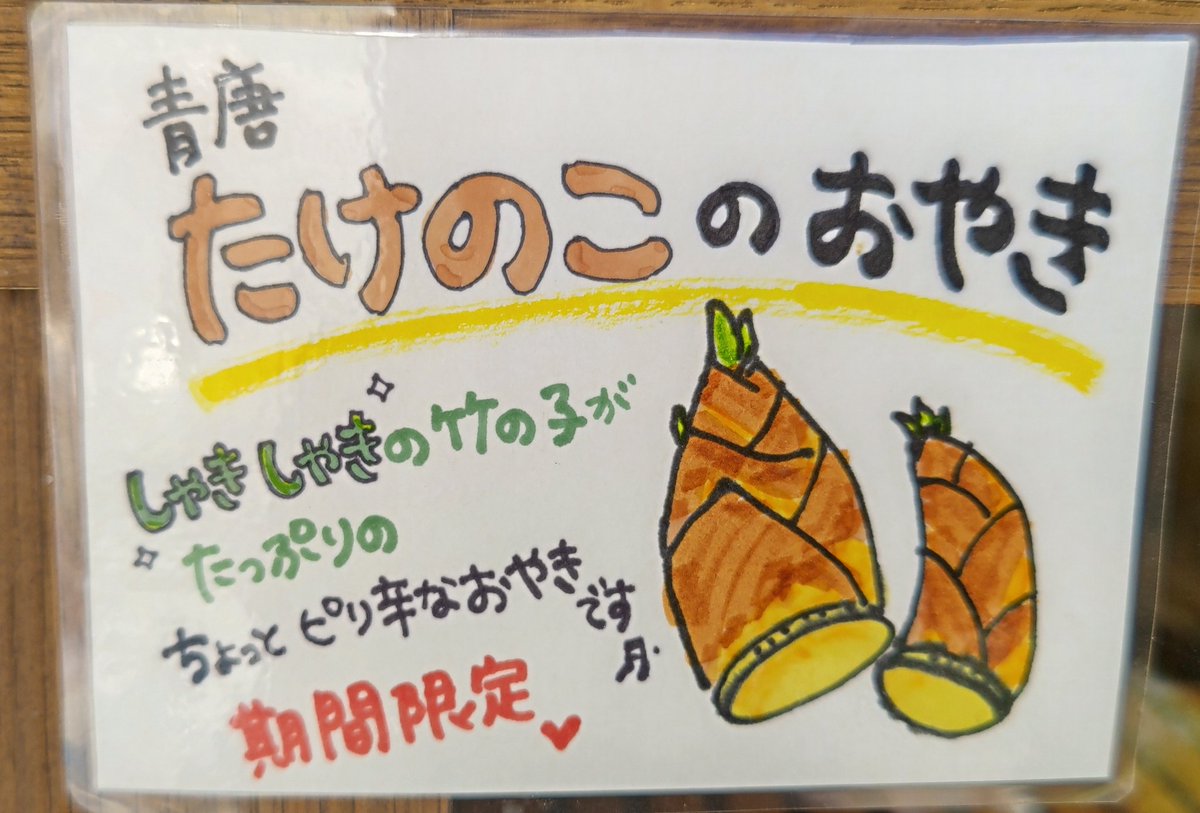 青唐
たけのこのおやき
しゃきしゃきの竹の子が
たっぷりの
ちょっとピリ辛なおやきです
期間限定